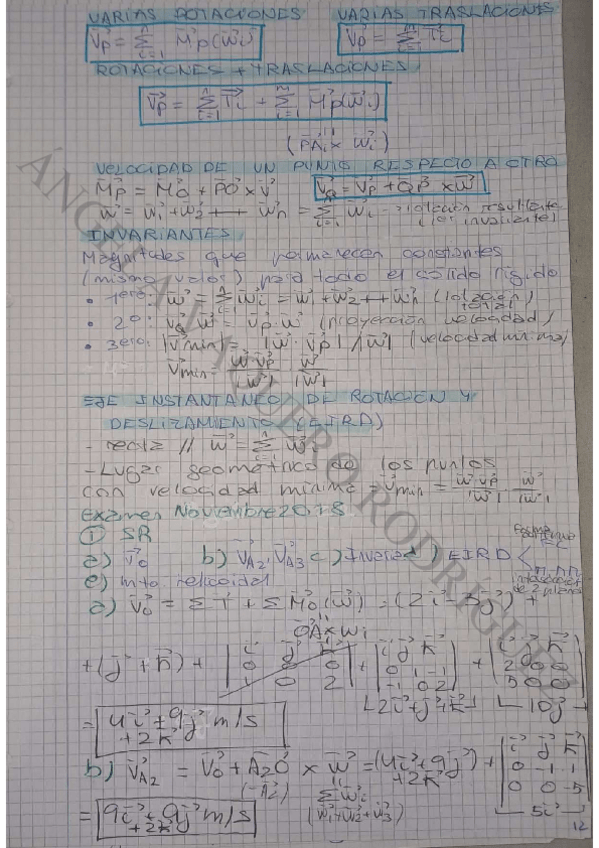 VARIAS ROTACIONES VARIAS TRASLACIONES
V⃗p = Σ(i=1, n) M⃗p(w⃗i) V⃗p = Σ(i=1, n) T⃗i
ROTACIONES + TRASLACIONES
V⃗p = Σ(i=1, n) T⃗i + Σ(i=1, m) M⃗p(w⃗i)
(PAi x wi)
VELOCIDAD DE UN PUNTO RESPECTO A OTRO
M⃗p = M⃗o + PO⃗ x v⃗ V⃗Q = V⃗p + QP⃗ x w⃗
w⃗ = w⃗1 + w⃗2 + --- w⃗n = Σ(i=1, n) w⃗i - rotación resultante
(1er invariante)
INVARIANTES
Magnitudes que permanecen constantes
(mismo valor) para todo el sólido rígido
• 1ero: w⃗ = Σ(i=1, n) w⃗i = w⃗1 + w⃗2 + --- + w⃗n (rotación)
total
• 2o: v⃗Q · w⃗ = v⃗p · w⃗ (proyección velocidad)
• 3ero: |v⃗min| = |w⃗ · v⃗p| / |w⃗| (velocidad mínima)
v⃗min = (w⃗ · v⃗p / |w⃗|) · (w⃗ / |w⃗|)
EJE INSTANTÁNEO DE ROTACIÓN Y
DESLIZAMIENTO (EIRD)
- recta // w⃗ = Σ(i=1, n) w⃗i
- Lugar geométrico de los puntos
con velocidad mínima = v⃗min = (w⃗ · v⃗p / |w⃗|) · (w⃗ / |w⃗|)
Examen Noviembre 2018
① SR
a) v⃗o b) V⃗A2, V⃗A3 c) Invar d) EIRD
de 2 planos
e) mto helicoidal
a) V⃗o = ΣT⃗ + ΣM⃗o(w⃗) = (2i⃗ - j⃗) +
OA⃗ x wi
+ (j⃗ + k⃗) + |i⃗ j⃗ k⃗; 0 0 0; 1 0 2| + |i⃗ j⃗ k⃗; 0 1 -1; -1 0 2| + |i⃗ j⃗ k⃗; 2 0 0; 5 0 0|
2i⃗ + j⃗ + k⃗ 10j⃗
= 4i⃗ + 9j⃗ m/s
+ 2k⃗
b) V⃗A2 = V⃗o + A2O⃗ x w⃗ = (4i⃗ + 9j⃗ + 2k⃗) + |i⃗ j⃗ k⃗; 0 -1 1; 0 0 -5|
(-A2) Σwi
(w1+w2+w3) 5i⃗
= 9i⃗ + 9j⃗ m/s
+ 2k⃗
12
ÁNGELA VAQUERO RODRÍGUEZ